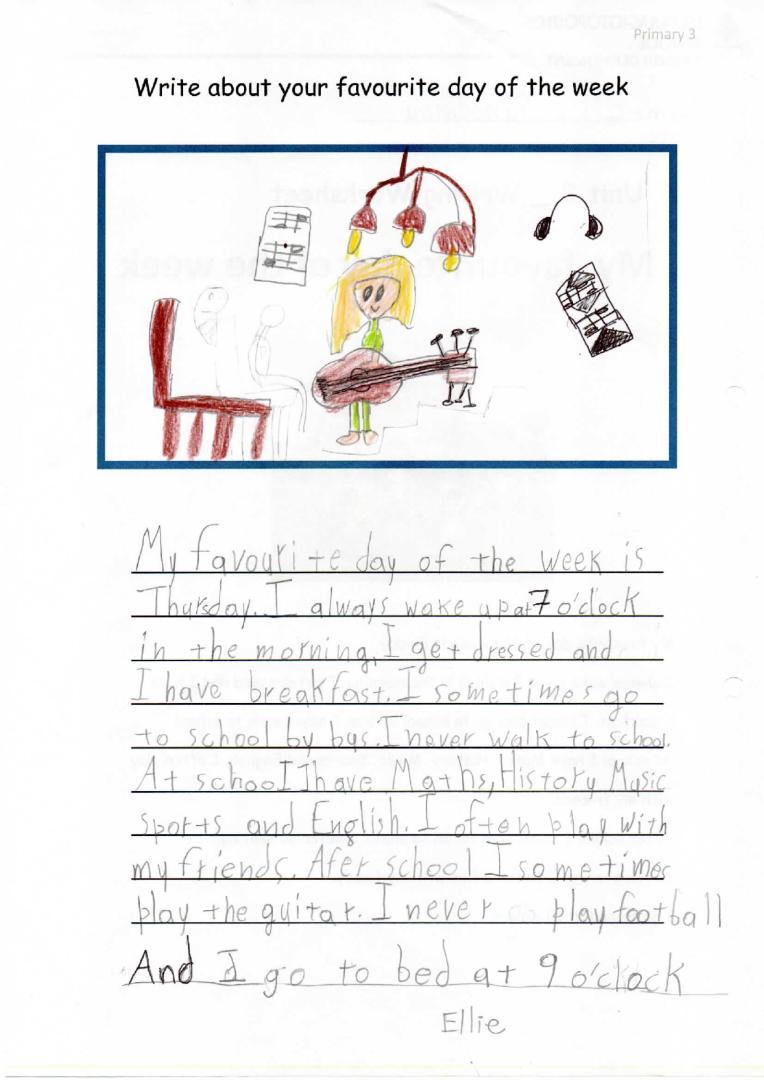 Primary 3
Write about your favourite day of the week
My favourite day of the week is
Thursday. I always wake up at 7 o'clock
in the morning, I get dressed and
I have breakfast. I sometimes go
to school by bus. I never walk to school.
At school I have Maths, History Music
sports and English. I often play with
my friends. Afer school I sometimes
play the guitar. I never play football
And I go to bed at 9 o'clock
Ellie